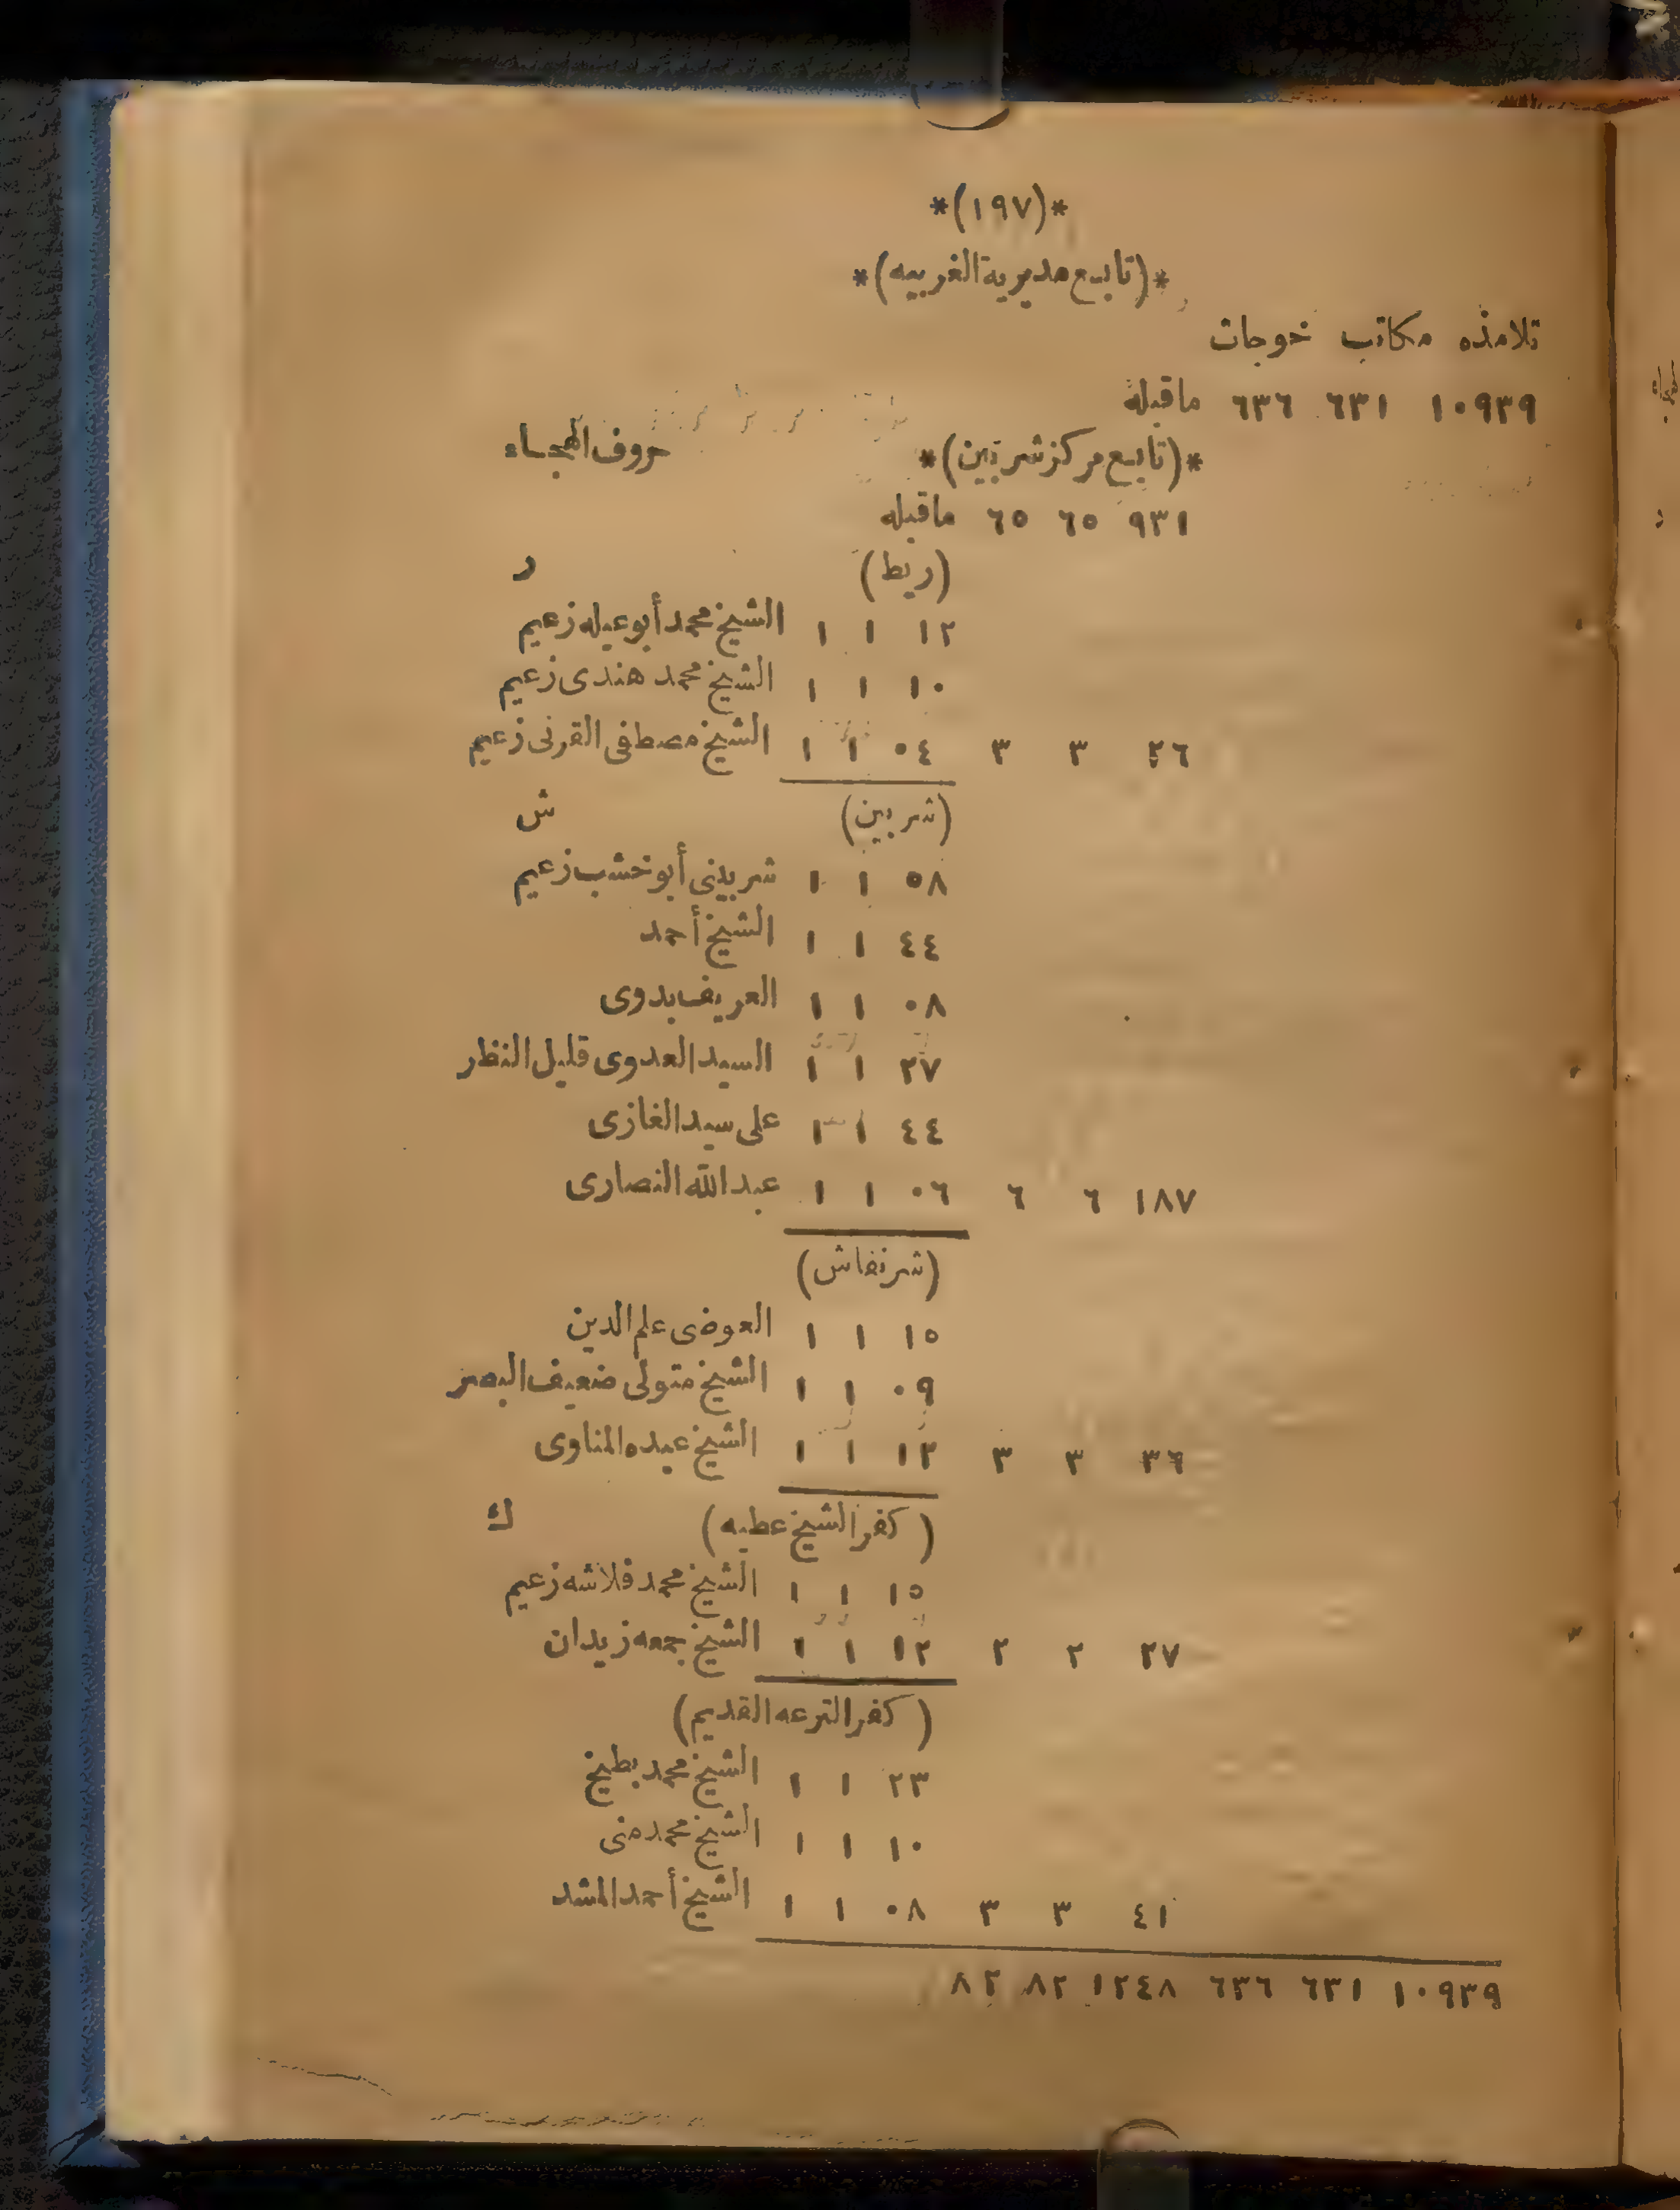 *(١٩٧)*
*(تابع مديرية الغربيه)*
تلامذه مكاتب خوجات
١٠٩٣٩ ٦٣١ ٦٣٦ ماقبله
*(تابع مركز شربين)* حروف الهجاء
٩٣١ ٦٥ ٦٥ ماقبله
(ريط) ر
١٢ ١ ١ الشيخ محمد أبوعيله زعيم
١٠ ١ ١ الشيخ محمد هندى زعيم
٢٦ ٣ ٣ ٠٤ ١ ١ الشيخ مصطفى القرنى زعيم
(شربين) ش
٥٨ ١ ١ شربينى أبوخشب زعيم
٤٤ ١ ١ الشيخ أحمد
٠٨ ١ ١ العريف بدوى
٢٧ ١ ١ السيد العدوى قليل النظار
٤٤ ١ ١ على سيد الغازى
١٨٧ ٦ ٦ ٠٦ ١ ١ عبد الله النصارى
(شرنقاش)
١٥ ١ ١ العوضى علم الدين
٠٩ ١ ١ الشيخ متولى ضعيف البصر
٣٦ ٣ ٣ ١٢ ١ ١ الشيخ عبده المناوى
(كفر الشيخ عطيه) ك
١٥ ١ ١ الشيخ محمد فلاشه زعيم
٢٧ ٢ ٢ ١٢ ١ ١ الشيخ جمعه زيدان
(كفر الترعه القديم)
٢٣ ١ ١ الشيخ محمد بطيخ
١٠ ١ ١ الشيخ محمد منى
٤١ ٣ ٣ ٠٨ ١ ١ الشيخ أحمد المشد
١٠٩٣٩ ٦٣١ ٦٣٦ ١٢٤٨ ٨٢ ٨٢